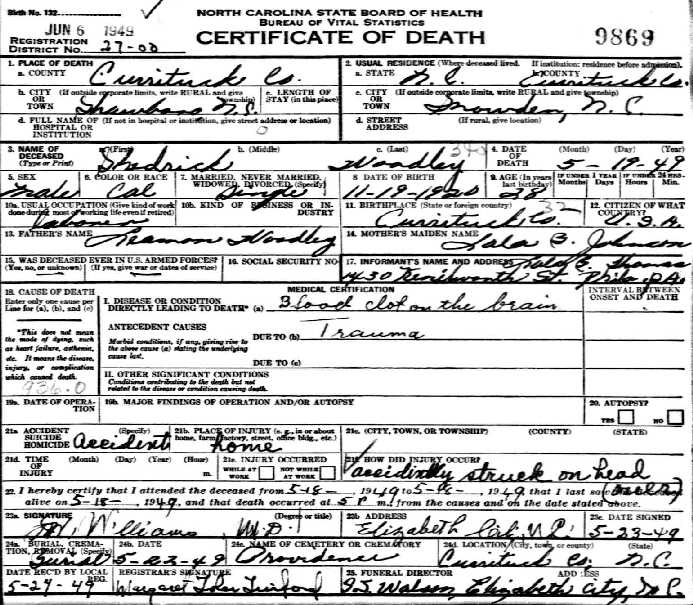 Birth No. 132
NORTH CAROLINA STATE BOARD OF HEALTH
BUREAU OF VITAL STATISTICS
CERTIFICATE OF DEATH
9869
JUN 6 1949
REGISTRATION DISTRICT No. 27-00
1. PLACE OF DEATH
a. COUNTY Currituck Co.
2. USUAL RESIDENCE (Where deceased lived. If institution: residence before admission).
a. STATE N.C. b. COUNTY Currituck Co.
b. CITY (If outside corporate limits, write RURAL and give township) OR TOWN Shawboro N.C.
c. LENGTH OF STAY (in this place)
c. CITY (If outside corporate limits, write RURAL and give township) OR TOWN Snowden, N.C.
d. FULL NAME OF (If not in hospital or institution, give street address or location) HOSPITAL OR INSTITUTION
d. STREET ADDRESS (If rural, give location)
3. NAME OF DECEASED (Type or Print)
a. (First) Shedrick b. (Middle) c. (Last) Woodley
4. DATE OF DEATH (Month) (Day) (Year) 5-19-49
5. SEX Male
6. COLOR OR RACE Col
7. MARRIED, NEVER MARRIED, WIDOWED, DIVORCED (Specify) Single
8 DATE OF BIRTH 11-19-1920
9. AGE (In years last birthday) 28
IF UNDER 1 YEAR Months Days
IF UNDER 24 HRS. Hours Min.
10a. USUAL OCCUPATION (Give kind of work done during most of working life even if retired) Laborer
10b. KIND OF BUSINESS OR INDUSTRY
11. BIRTHPLACE (State or foreign country) Currituck Co.
12. CITIZEN OF WHAT COUNTRY? U.S.A.
13. FATHER'S NAME Leamon Woodley
14. MOTHER'S MAIDEN NAME Lala B. Johnson
15. WAS DECEASED EVER IN U.S. ARMED FORCES? (Yes, no, or unknown) (If yes, give war or dates of service)
16. SOCIAL SECURITY NO.
17. INFORMANT'S NAME AND ADDRESS Lala B. Thomas
1430 Kenilworth St. Phila. PA.
18. CAUSE OF DEATH
Enter only one cause per Line for (a), (b), and (c)
MEDICAL CERTIFICATION
INTERVAL BETWEEN ONSET AND DEATH
I. DISEASE OR CONDITION DIRECTLY LEADING TO DEATH* (a) Blood clot on the brain
*This does not mean the mode of dying, such as heart failure, asthenia, etc. It means the disease, injury, or complication which caused death.
936.0
ANTECEDENT CAUSES
Morbid conditions, if any, giving rise to the above cause (a) stating the underlying cause last.
DUE TO (b) Trauma
DUE TO (c)
II. OTHER SIGNIFICANT CONDITIONS
Conditions contributing to the death but not related to the disease or condition causing death.
19a. DATE OF OPERATION
19b. MAJOR FINDINGS OF OPERATION AND/OR AUTOPSY
20. AUTOPSY?
YES NO
21a. ACCIDENT SUICIDE HOMICIDE (Specify) Accident
21b. PLACE OF INJURY (e. g., in or about home, farm, factory, street, office bldg., etc.) home
21c. (CITY, TOWN, OR TOWNSHIP) (COUNTY) (STATE)
21d. TIME OF INJURY (Month) (Day) (Year) (Hour) m.
21e. INJURY OCCURRED
WHILE AT WORK NOT WHILE AT WORK
21f. HOW DID INJURY OCCUR?
accidintly struck on head
22. I hereby certify that I attended the deceased from 5-18-, 1949 to 5-18-, 1949 that I last saw
alive on 5-18-, 1949, and that death occurred at 5 P m., from the causes and on the date stated above.
23a. SIGNATURE (Degree or title) Williams M.D.
23b. ADDRESS Elizabeth City, N.C.
23c. DATE SIGNED 5-23-49
24a. BURIAL, CREMATION, REMOVAL (Specify) Burial
24b. DATE 5-22-49
24c. NAME OF CEMETERY OR CREMATORY Providence
24d. LOCATION (City, town, or county) (State) Currituck Co. N.C.
DATE REC'D BY LOCAL REG. 5-27-49
REGISTRAR'S SIGNATURE Margaret
25. FUNERAL DIRECTOR ADDRESS
Walson, Elizabeth City, N.C.